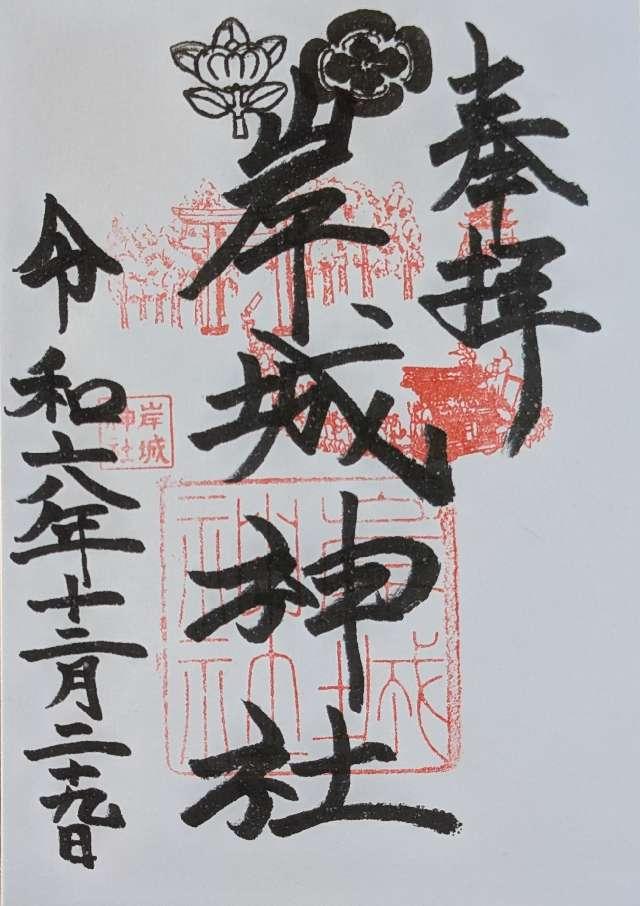 奉拝
岸城神社
岸城
神社
岸城
神社
令和六年十二月二十九日